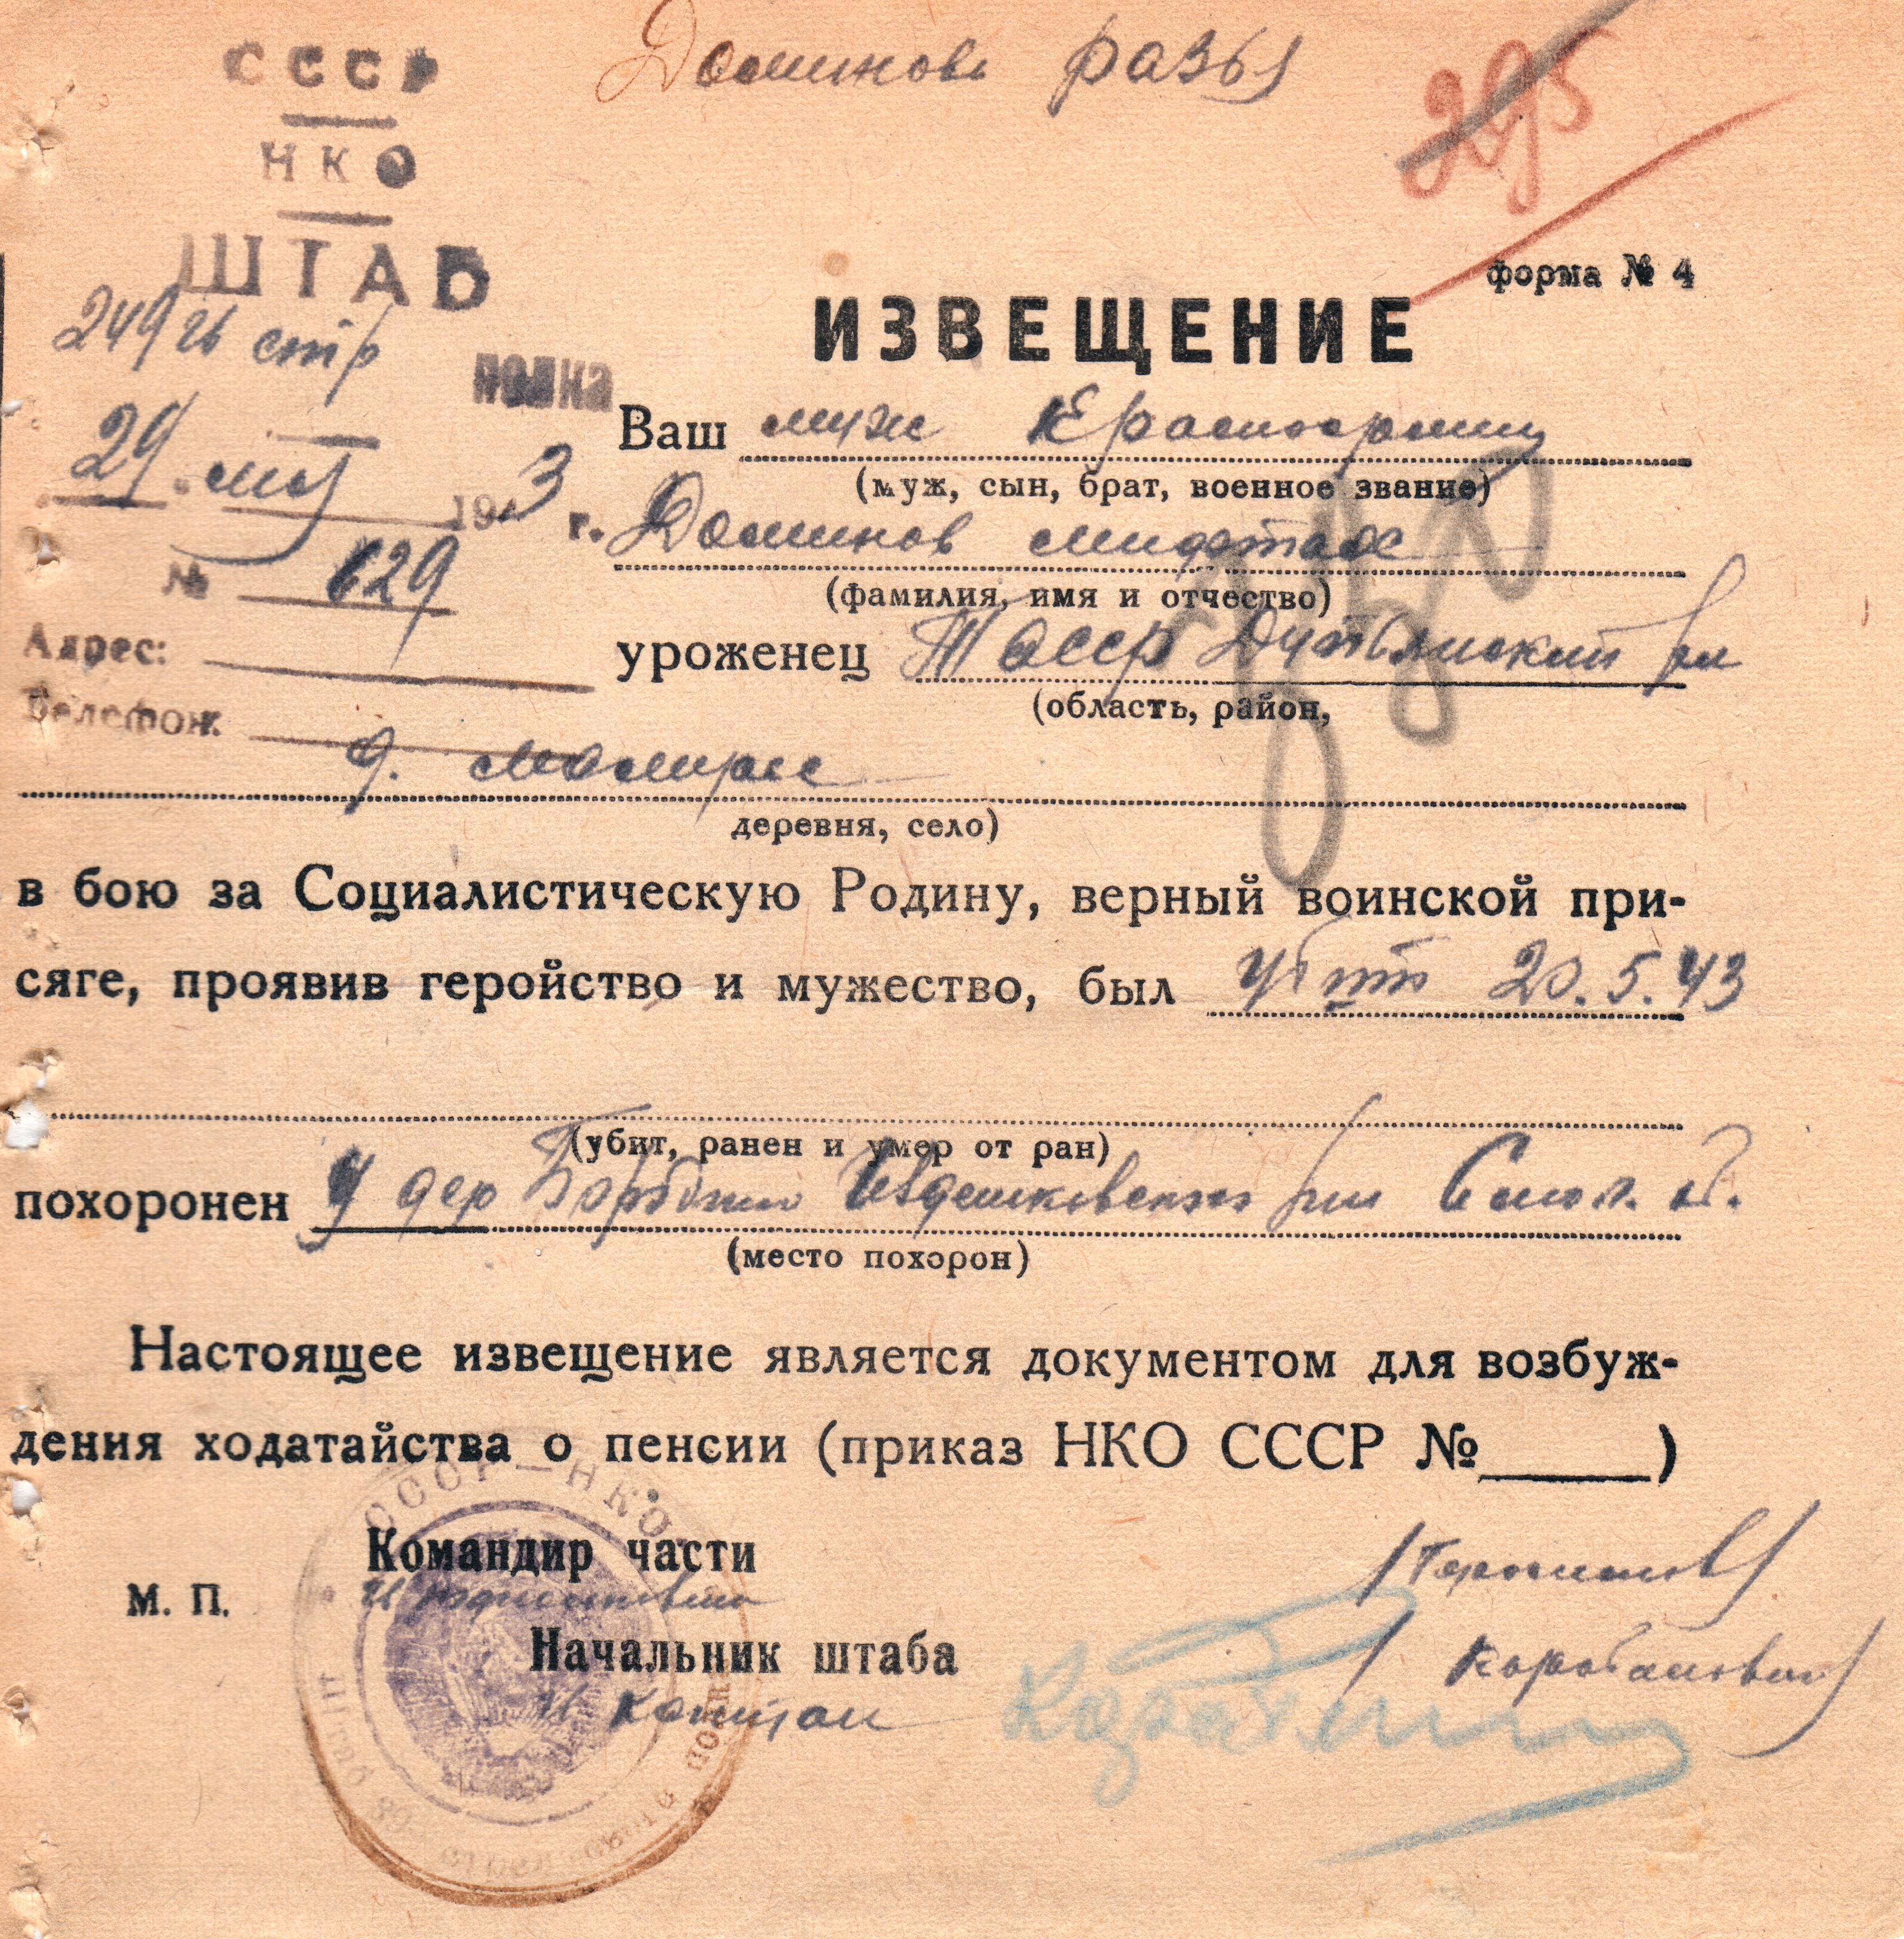 Доминовь Разы
295
СССР
НКО
ШТАБ
249 гв стр
полка
29 мая 1943 г.
№ 629
Адрес:
Телефон:
форма № 4
ИЗВЕЩЕНИЕ
Ваш муж Красноармеец
(муж, сын, брат, военное звание)
Доминов Мифтах
(фамилия, имя и отчество)
уроженец Т АССР
(область, район,
д.
деревня, село)
в бою за Социалистическую Родину, верный воинской при-
сяге, проявив геройство и мужество, был убит 20.5.43
(убит, ранен и умер от ран)
похоронен у дер Смол. об.
(место похорон)
Настоящее извещение является документом для возбуж-
дения ходатайства о пенсии (приказ НКО СССР №      )
СССР — НКО
Командир части
М. П.
Начальник штаба